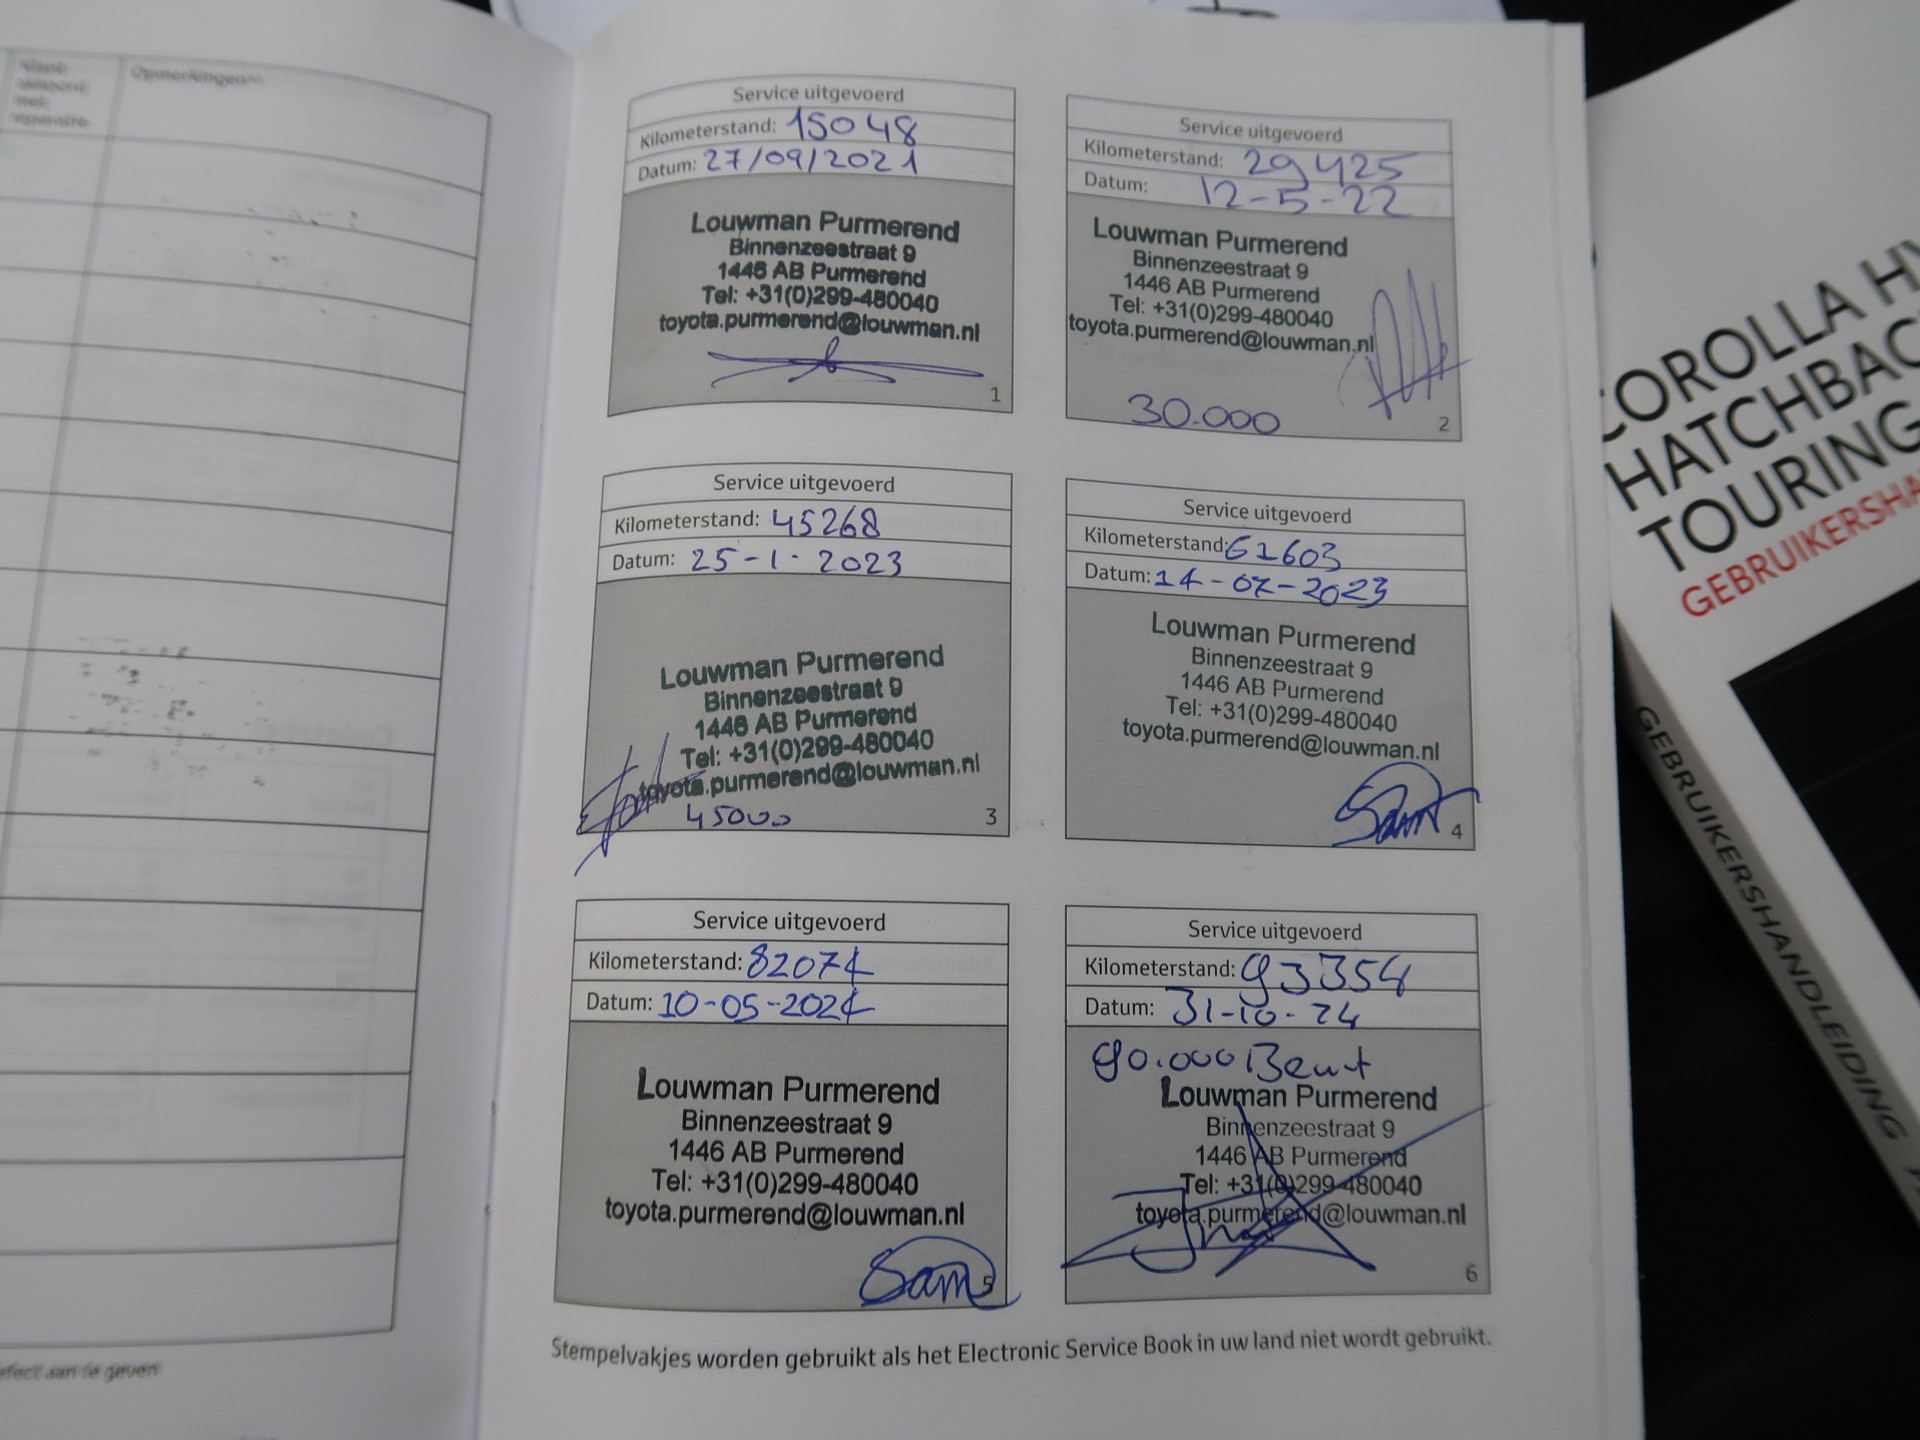 Opmerkingen
Service uitgevoerd
Kilometerstand: 15048
Datum: 27/09/2021
Louwman Purmerend
Binnenzeestraat 9
1446 AB Purmerend
Tel: +31(0)299-480040
toyota.purmerend@louwman.nl
1
Service uitgevoerd
Kilometerstand: 29425
Datum: 12-5-22
Louwman Purmerend
Binnenzeestraat 9
1446 AB Purmerend
Tel: +31(0)299-480040
toyota.purmerend@louwman.nl
30.000
2
Service uitgevoerd
Kilometerstand: 45268
Datum: 25-1-2023
Louwman Purmerend
Binnenzeestraat 9
1446 AB Purmerend
Tel: +31(0)299-480040
toyota.purmerend@louwman.nl
45000
3
Service uitgevoerd
Kilometerstand: 61603
Datum: 14-07-2023
Louwman Purmerend
Binnenzeestraat 9
1446 AB Purmerend
Tel: +31(0)299-480040
toyota.purmerend@louwman.nl
4
Service uitgevoerd
Kilometerstand: 82074
Datum: 10-05-2024
Louwman Purmerend
Binnenzeestraat 9
1446 AB Purmerend
Tel: +31(0)299-480040
toyota.purmerend@louwman.nl
Sam
5
Service uitgevoerd
Kilometerstand: 93354
Datum: 31-10-24
90.000 Beurt
Louwman Purmerend
Binnenzeestraat 9
1446 AB Purmerend
Tel: +31(0)299-480040
toyota.purmerend@louwman.nl
6
Stempelvakjes worden gebruikt als het Electronic Service Book in uw land niet wordt gebruikt.
aan te geven
COROLLA HY
HATCHBAC
TOURING
GEBRUIKERSHA
GEBRUIKERSHANDLEIDING